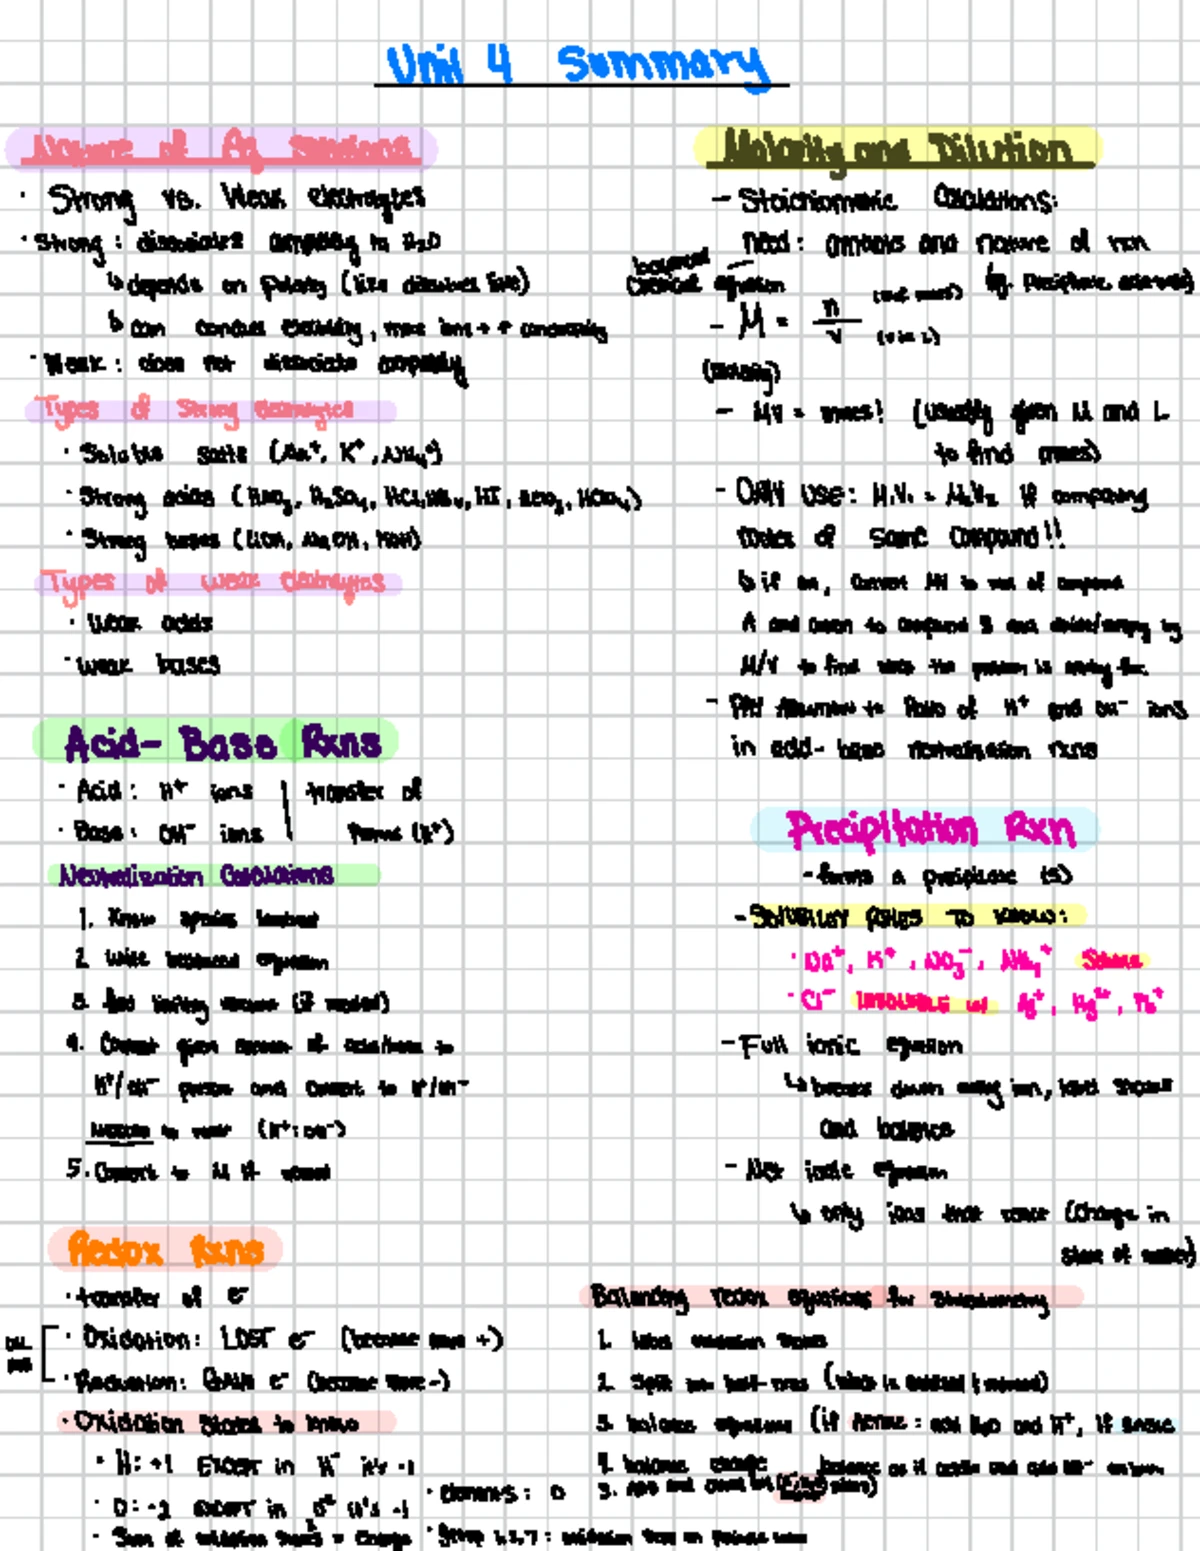 Unit 4 Summary
Nature of Aq Solutions
· Strong vs. Weak electrolytes
· Strong: dissociates completely in H₂O
↳ depends on Polarity (like dissolves like)
↳ can conduct electricity, more ions → ↑ conductivity
· Weak: does not dissociate completely
Types of Strong electrolytes
· Soluble salts (Na⁺, K⁺, NH₄⁺)
· Strong acids (HNO₃, H₂SO₄, HCl, HBr, HI, HClO₃, HClO₄)
· Strong bases (LiOH, NaOH, KOH)
Types of weak electrolytes
· Weak acids
· weak bases
Acid-Base Rxns
· Acid: H⁺ ions | transfer of
· Base: OH⁻ ions | Protons (H⁺)
Neutralization Calculations
1. Know species involved
2. Write balanced equation
3. find limiting reactant (if needed)
4. Convert given of acid/base to
H⁺/OH⁻ and convert to H⁺/OH⁻
to (H⁺:OH⁻)
5. Convert to M if
Redox Rxns
· transfer of e⁻
· Oxidation: LOST e⁻ (become more +)
· Reduction: GAIN e⁻ (become more -)
· Oxidation States to know
· H: +1 EXCEPT in H⁻ it's -1
· O: -2 EXCEPT in it's -1
· Sum of oxidation states = charge
· Elements: 0
· Group 1, 2, 7: oxidation
Molarity and Dilution
- Stoichiometric Calculations:
need: amounts and nature of rxn
balanced chemical equation (eg. Precipitate, acid-base)
- M = n/V (in moles) (V in L)
(Molarity)
- MV = moles! (usually given M and L
to find moles)
- ONLY USE: M₁V₁ = M₂V₂ if comparing
moles of same compound!!
↳ if not, convert MV to mol of compound
A and then to compound B and divide/multiply by
M/V to find what the problem is asking for
- PAY Attention to Ratio of H⁺ and OH⁻ ions
in acid-base neutralization rxns
Precipitation Rxn
- forms a precipitate (s)
- SOLUBILITY RULES TO KNOW:
· Na⁺, K⁺, NO₃⁻, NH₄⁺ Soluble
· Cl⁻ INSOLUBLE w/ Ag⁺, Hg²⁺, Pb⁺
- Full ionic equation
↳ breaks down every ion, label states
and balance
- Net ionic equation
↳ only ions that react (Change in
state of matter)
Balancing redox equations for stoichiometry
1. label oxidation states
2. Split into half-rxns (which is oxidized & reduced)
3. balance equations (if Acidic: add H₂O and H⁺, if Basic
balance as if acidic and add OH⁻
4. balance charge
5. Add and cancel out